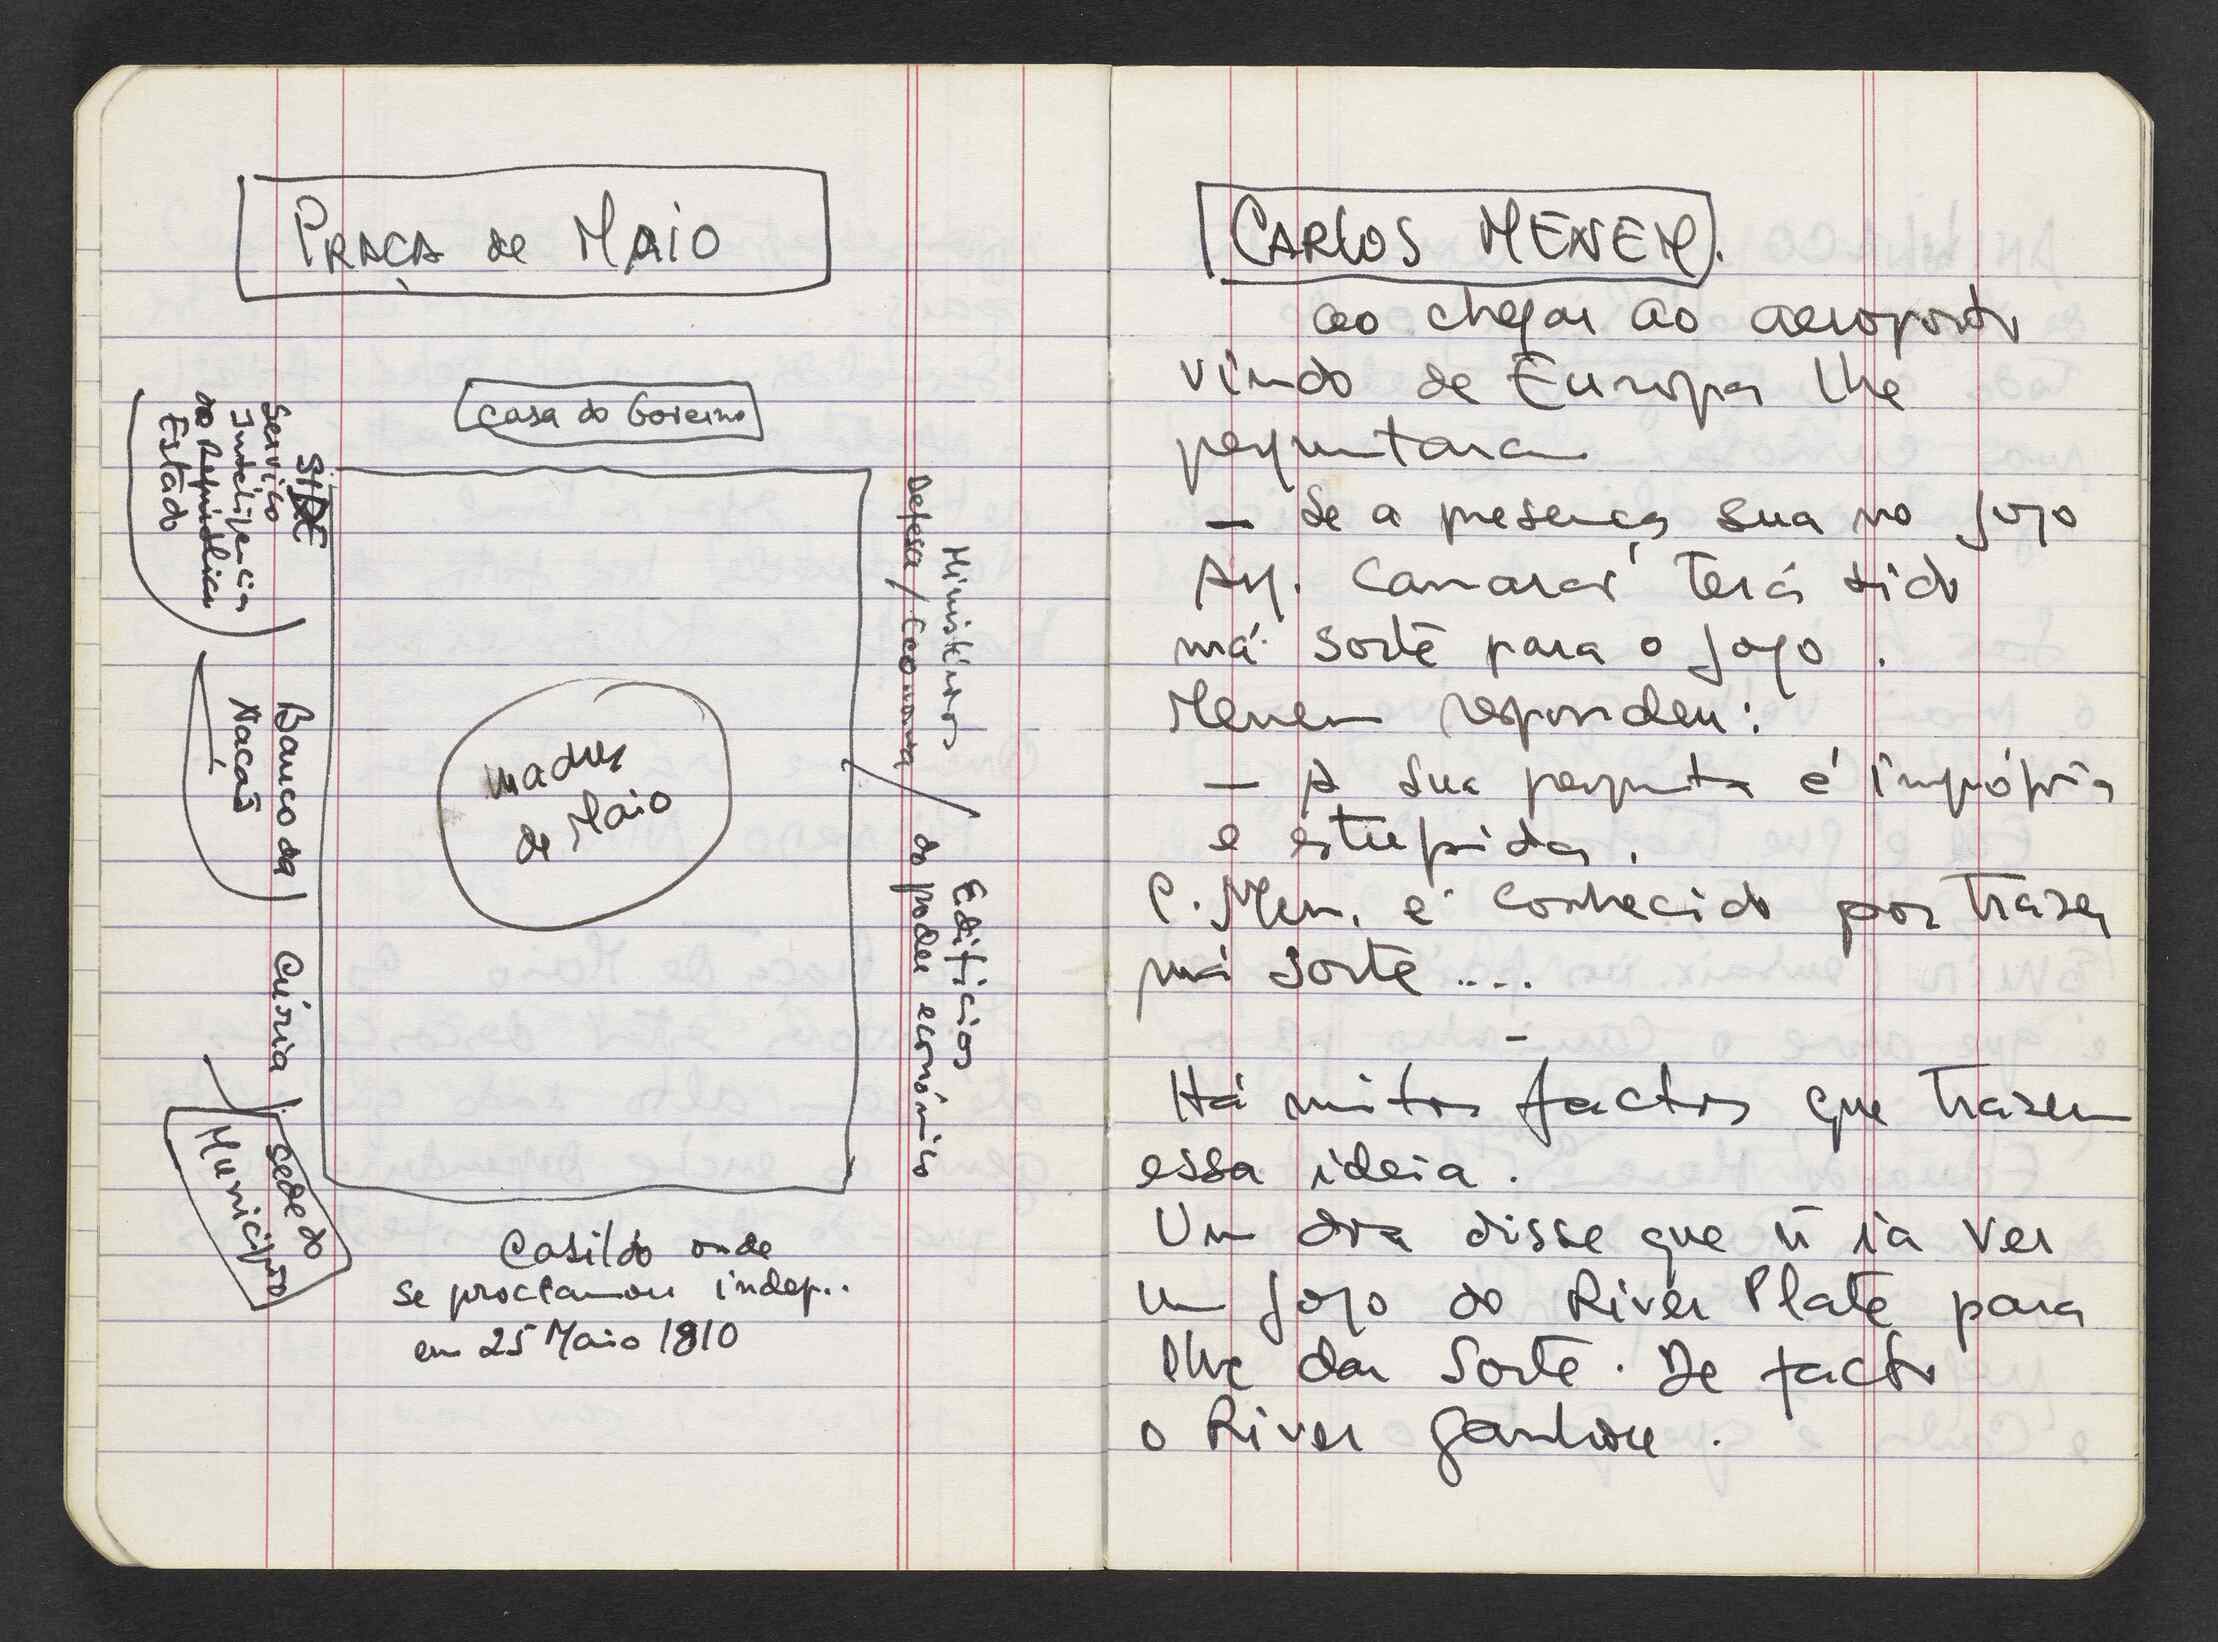 PRAÇA de MAIO
casa do Governo
SIDE
Serviço
Inteligencia
do Republica
Estado
Banco da
Nacaõ
Cúria
sede do
Município
madres
de Maio
Ministérios
Defesa / Economia
Edificios
do poder económico
Casildo onde
se proclamou indep..
em 25 Maio 1810
CARLOS MENEM.
ao chegar ao aeroporto
vindo de Europa lhe
perguntaram
- Se a presença sua no jogo
Arg. Camarões terá sido
má sorte para o jogo.
Menem respondeu:
- A sua pergunta é imprópria
e estupida.
C. Men. é conhecido por trazer
má sorte ....
-
Há muitos factos que trazem
essa ideia.
Um dia disse que ñ ia ver
um jogo do River Plate para
lhe dar Sorte. De facto
o River ganhou.